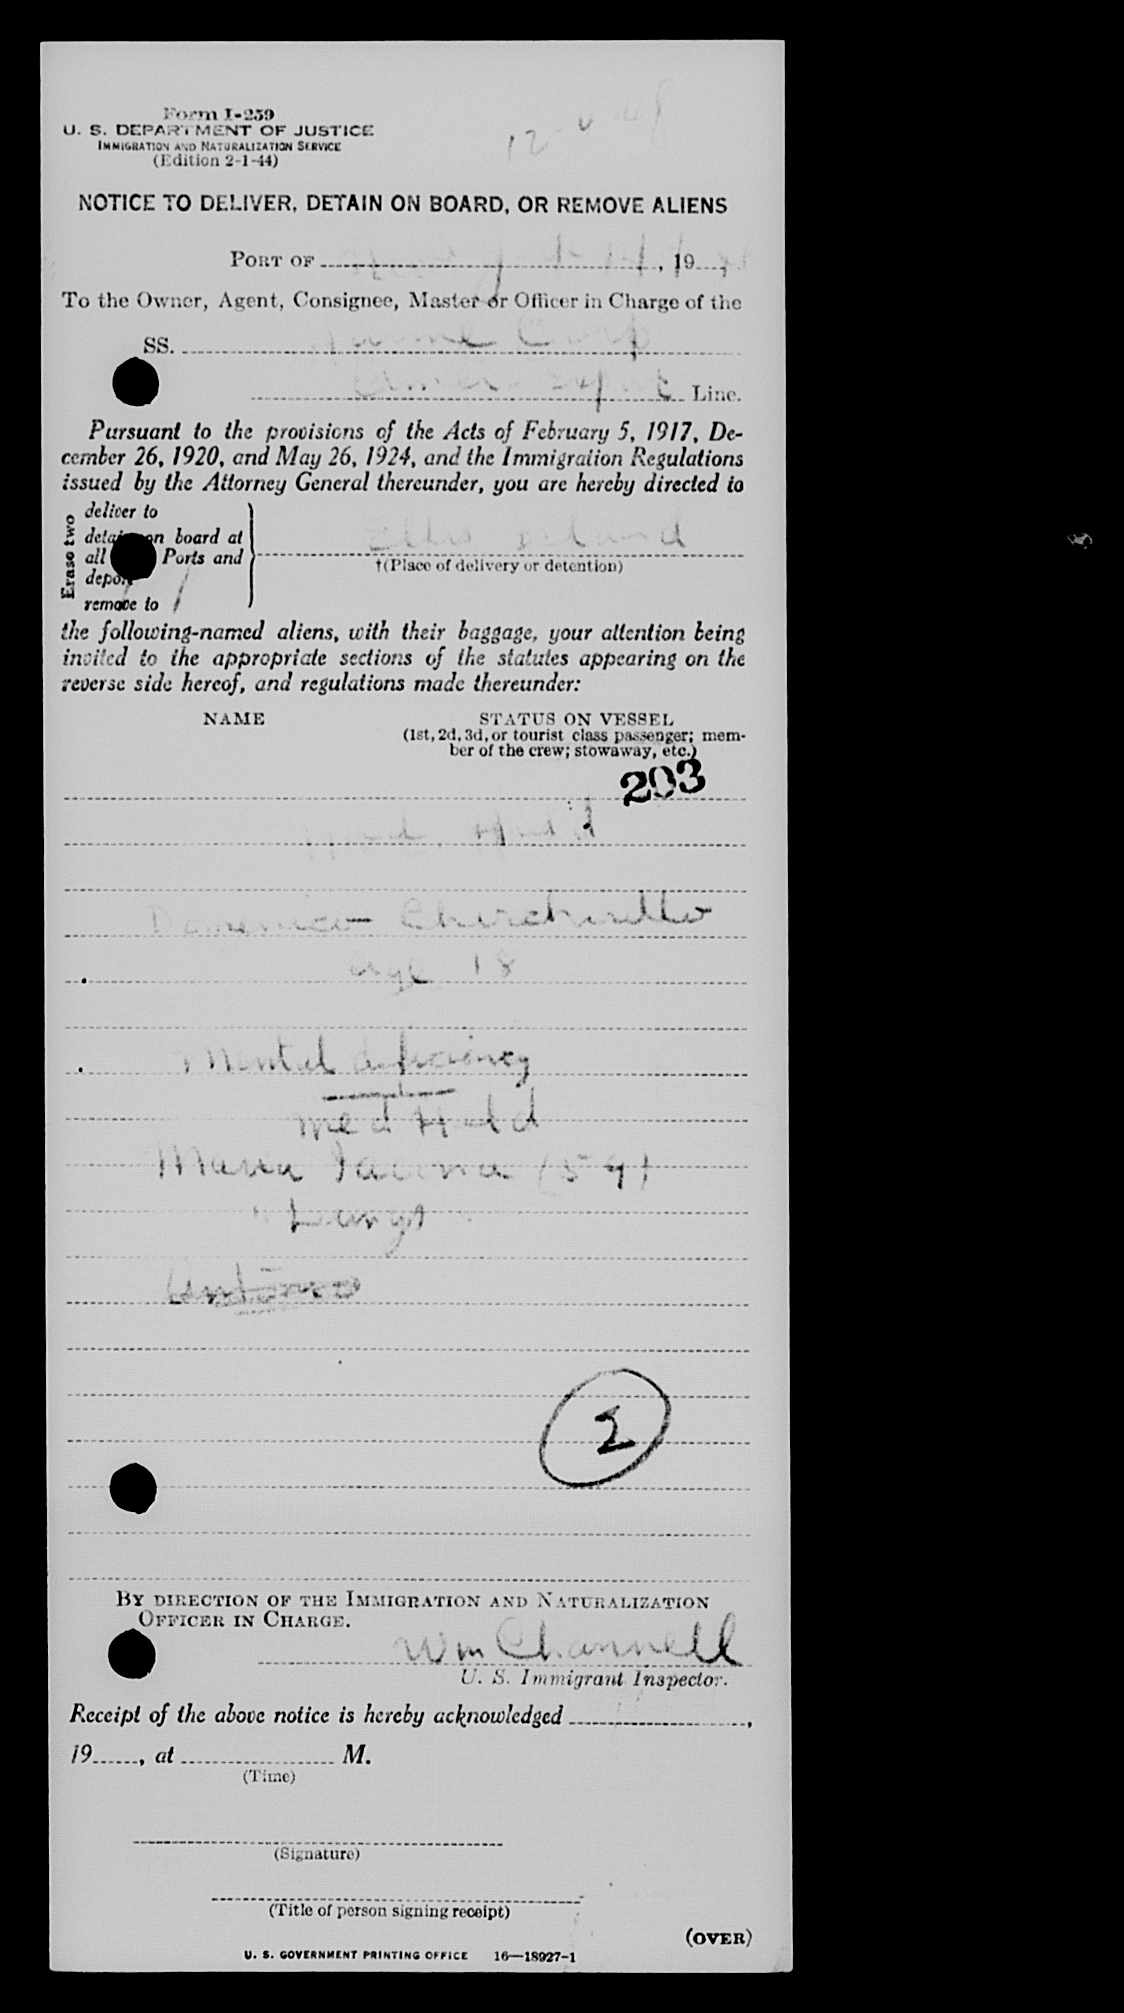 Form I-259
U. S. DEPARTMENT OF JUSTICE
IMMIGRATION AND NATURALIZATION SERVICE
(Edition 2-1-44)
NOTICE TO DELIVER, DETAIN ON BOARD, OR REMOVE ALIENS
PORT OF , 19
To the Owner, Agent, Consignee, Master or Officer in Charge of the
SS. Marine Carp
Line.
Pursuant to the provisions of the Acts of February 5, 1917, De-
cember 26, 1920, and May 26, 1924, and the Immigration Regulations
issued by the Attorney General thereunder, you are hereby directed to
Erase two
deliver to
detain on board at
all Ports and
deport
remove to
Ellis Island
†(Place of delivery or detention)
the following-named aliens, with their baggage, your attention being
invited to the appropriate sections of the statutes appearing on the
reverse side hereof, and regulations made thereunder:
NAME STATUS ON VESSEL
(1st, 2d, 3d, or tourist class passenger; mem-
ber of the crew; stowaway, etc.)
203
Med. Held
Domenico
age 18
Mental deficiency
Med Held
Maria (59)
Lungs
Antonio
2
BY DIRECTION OF THE IMMIGRATION AND NATURALIZATION
OFFICER IN CHARGE.
Wm Channell
U. S. Immigrant Inspector.
Receipt of the above notice is hereby acknowledged ,
19 , at M.
(Time)
(Signature)
(Title of person signing receipt)
(OVER)
U. S. GOVERNMENT PRINTING OFFICE 16—18927-1